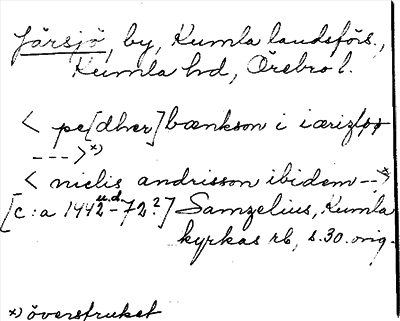 Järsjö, by, Kumla landsförs.,
Kumla hd, Örebro l.
< pe[dher] bænkson i iærizløø
--->x)
< nielis andrisson ibidem -->x
[c:a 1442 u.d. -72?] Samzelius, Kumla
kyrkas rb, s. 30. orig.
x) överstruket